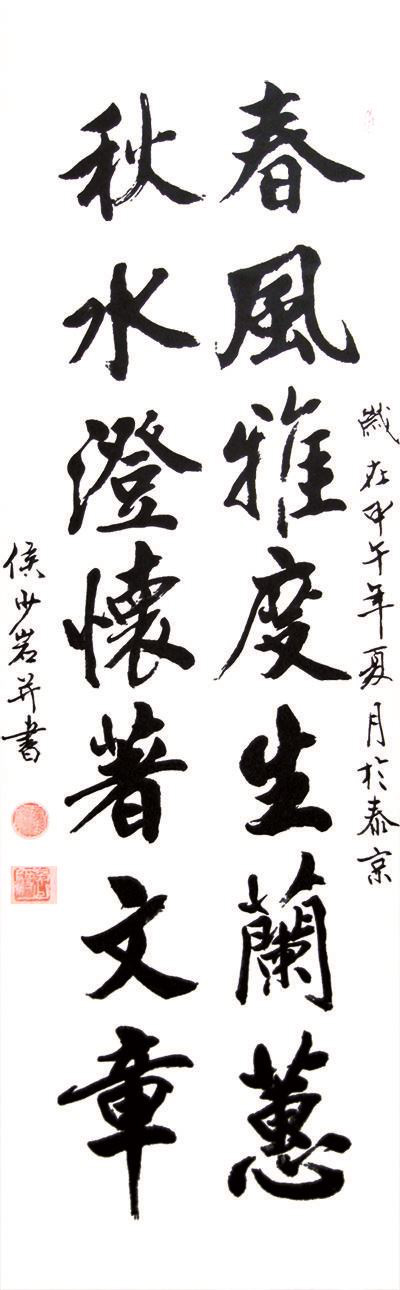 歲在甲午年夏月於泰京
春風雅度生蘭蕙
秋水澄懷著文章
侯少岩并書